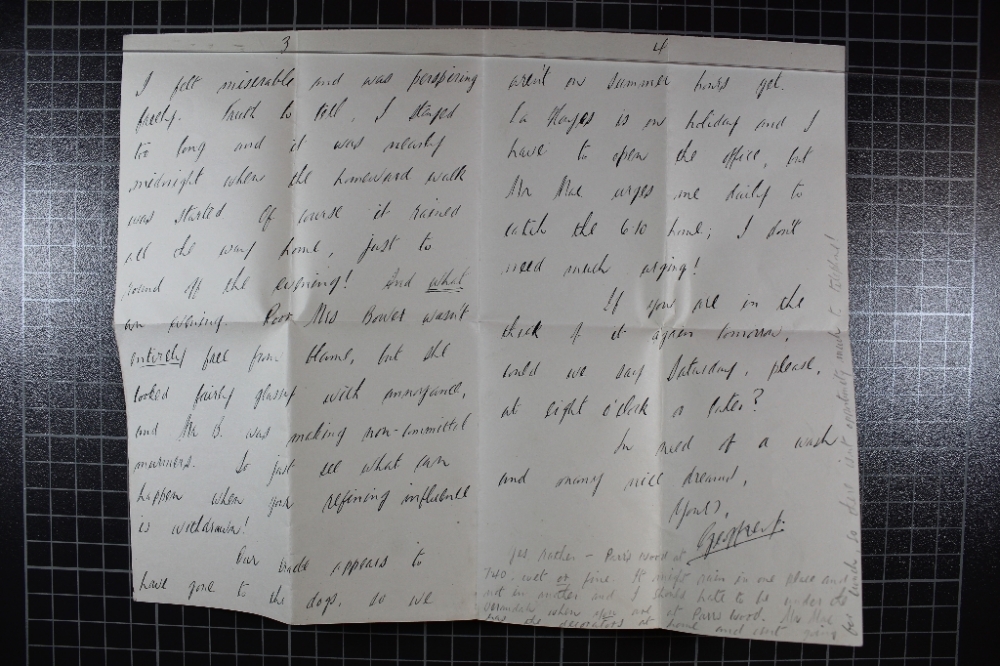 3
I felt miserable and was perspiring
freely. Truth to tell, I stayed
too long and it was nearly
midnight when the homeward walk
was started. Of course it rained
all the way home, just to
round off the evening! And what
an evening. Poor Mrs Bower wasn't
entirely free from blame, but she
looked fairly glassy with annoyance,
and Mr B. was making non-committal
murmurs. So just see what can
happen when your refining influence
is withdrawn!
Our trade appears to
have gone to the dogs, so we
4
aren't on summer hours yet.
La Hayes is on holiday and I
have to open the office, but
Mr Mac urges me daily to
catch the 6.10 home; I don't
need much urging!
If you are in the
thick of it again tomorrow,
could we say Saturday, please,
at eight o'clock or later?
In need of a wash
and many nice dreams,
Yours,
Geoffrey.
Yes rather - Parrs Wood at
7.40, wet or fine. It might rain in one place and
not in another and I should hate to be under the
verandah when you are at Parrs Wood. Mrs Mac
has the decorators at home and isn't going
to be much to